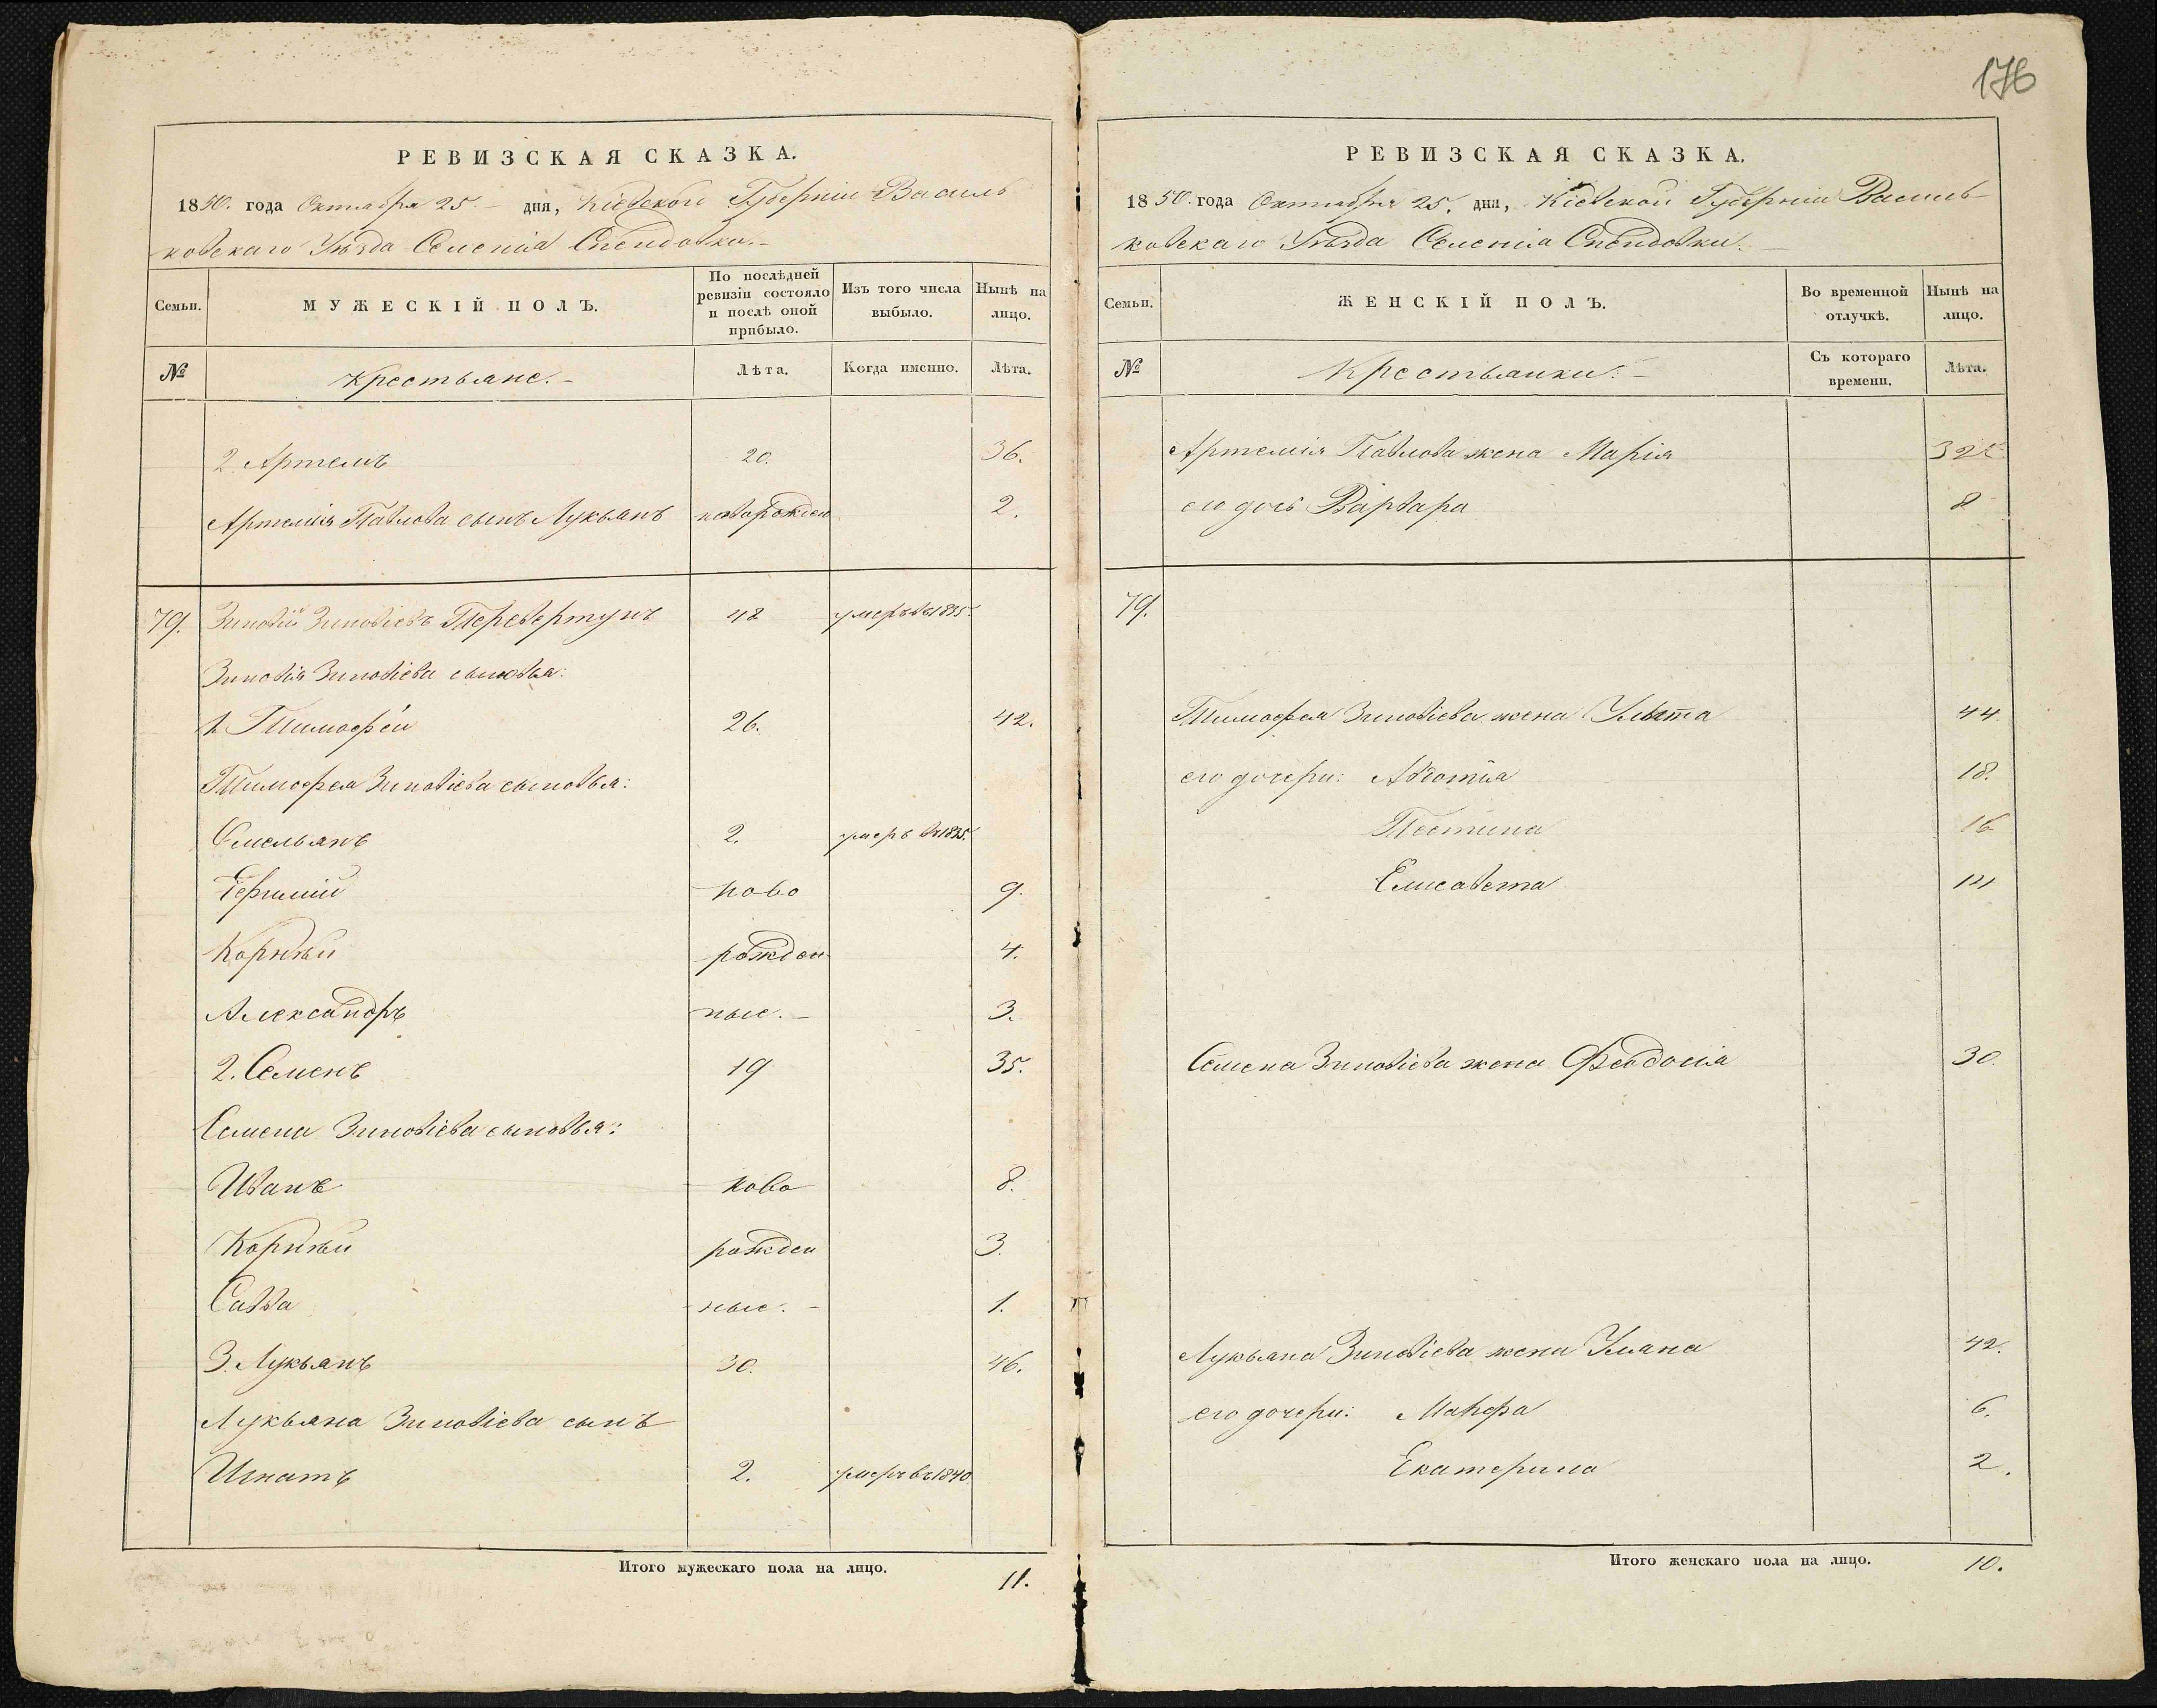 176
РЕВИЗСКАЯ СКАЗКА.
1850. года Октября 25. – дня, Кіевской Губерніи Василь
ковскаго Уѣзда Селенія Спендовки. –
Семьи.
МУЖЕСКІЙ ПОЛЪ.
По послѣдней ревизіи состояло и послѣ оной прибыло.
Изъ того числа выбыло.
Нынѣ на лицо.
№
Крестьяне. –
Лѣта.
Когда именно.
Лѣта.
2. Артемъ 20. 36.
Артемія Павлова сынъ Лукьянъ новорожден 2.
79. Зиновій Зиновіевъ Перевертунъ 48 умеръ въ 1835.
Зиновія Зиновіева сыновья:
1. Тимофей 26. 42.
Тимофея Зиновіева сыновья:
Омельянъ 2. умеръ въ 1835.
ново 9.
Корнѣй рожден 4.
Александръ ные. – 3.
2. Семенъ 19 35.
Семена Зиновіева сыновья:
Иванъ ново 8.
Корнѣй рожден 3.
Савва ные. – 1.
3. Лукьянъ 30. 46.
Лукьяна Зиновіева сынъ
Игнатъ 2. умеръ въ 1840.
Итого мужескаго пола на лицо. 11.
РЕВИЗСКАЯ СКАЗКА.
1850. года Октября 25. дня, Кіевской Губерніи Василь
ковскаго Уѣзда Селенія Спендовки. –
Семьи.
ЖЕНСКІЙ ПОЛЪ.
Во временной отлучкѣ.
Нынѣ на лицо.
№
Крестьянки. –
Съ котораго времени.
Лѣта.
Артемія Павлова жена Марія
его дочь Варвара 8
79.
Тимофея Зиновіева жена Ульита 44
его дочери: Авдотія 18.
Устина 16
Елисавета 14
Семена Зиновіева жена Феодосія 30.
Лукьяна Зиновіева жена Уляна 42.
его дочери: Манефа 6.
Екатерина 2.
Итого женскаго пола на лицо. 10.